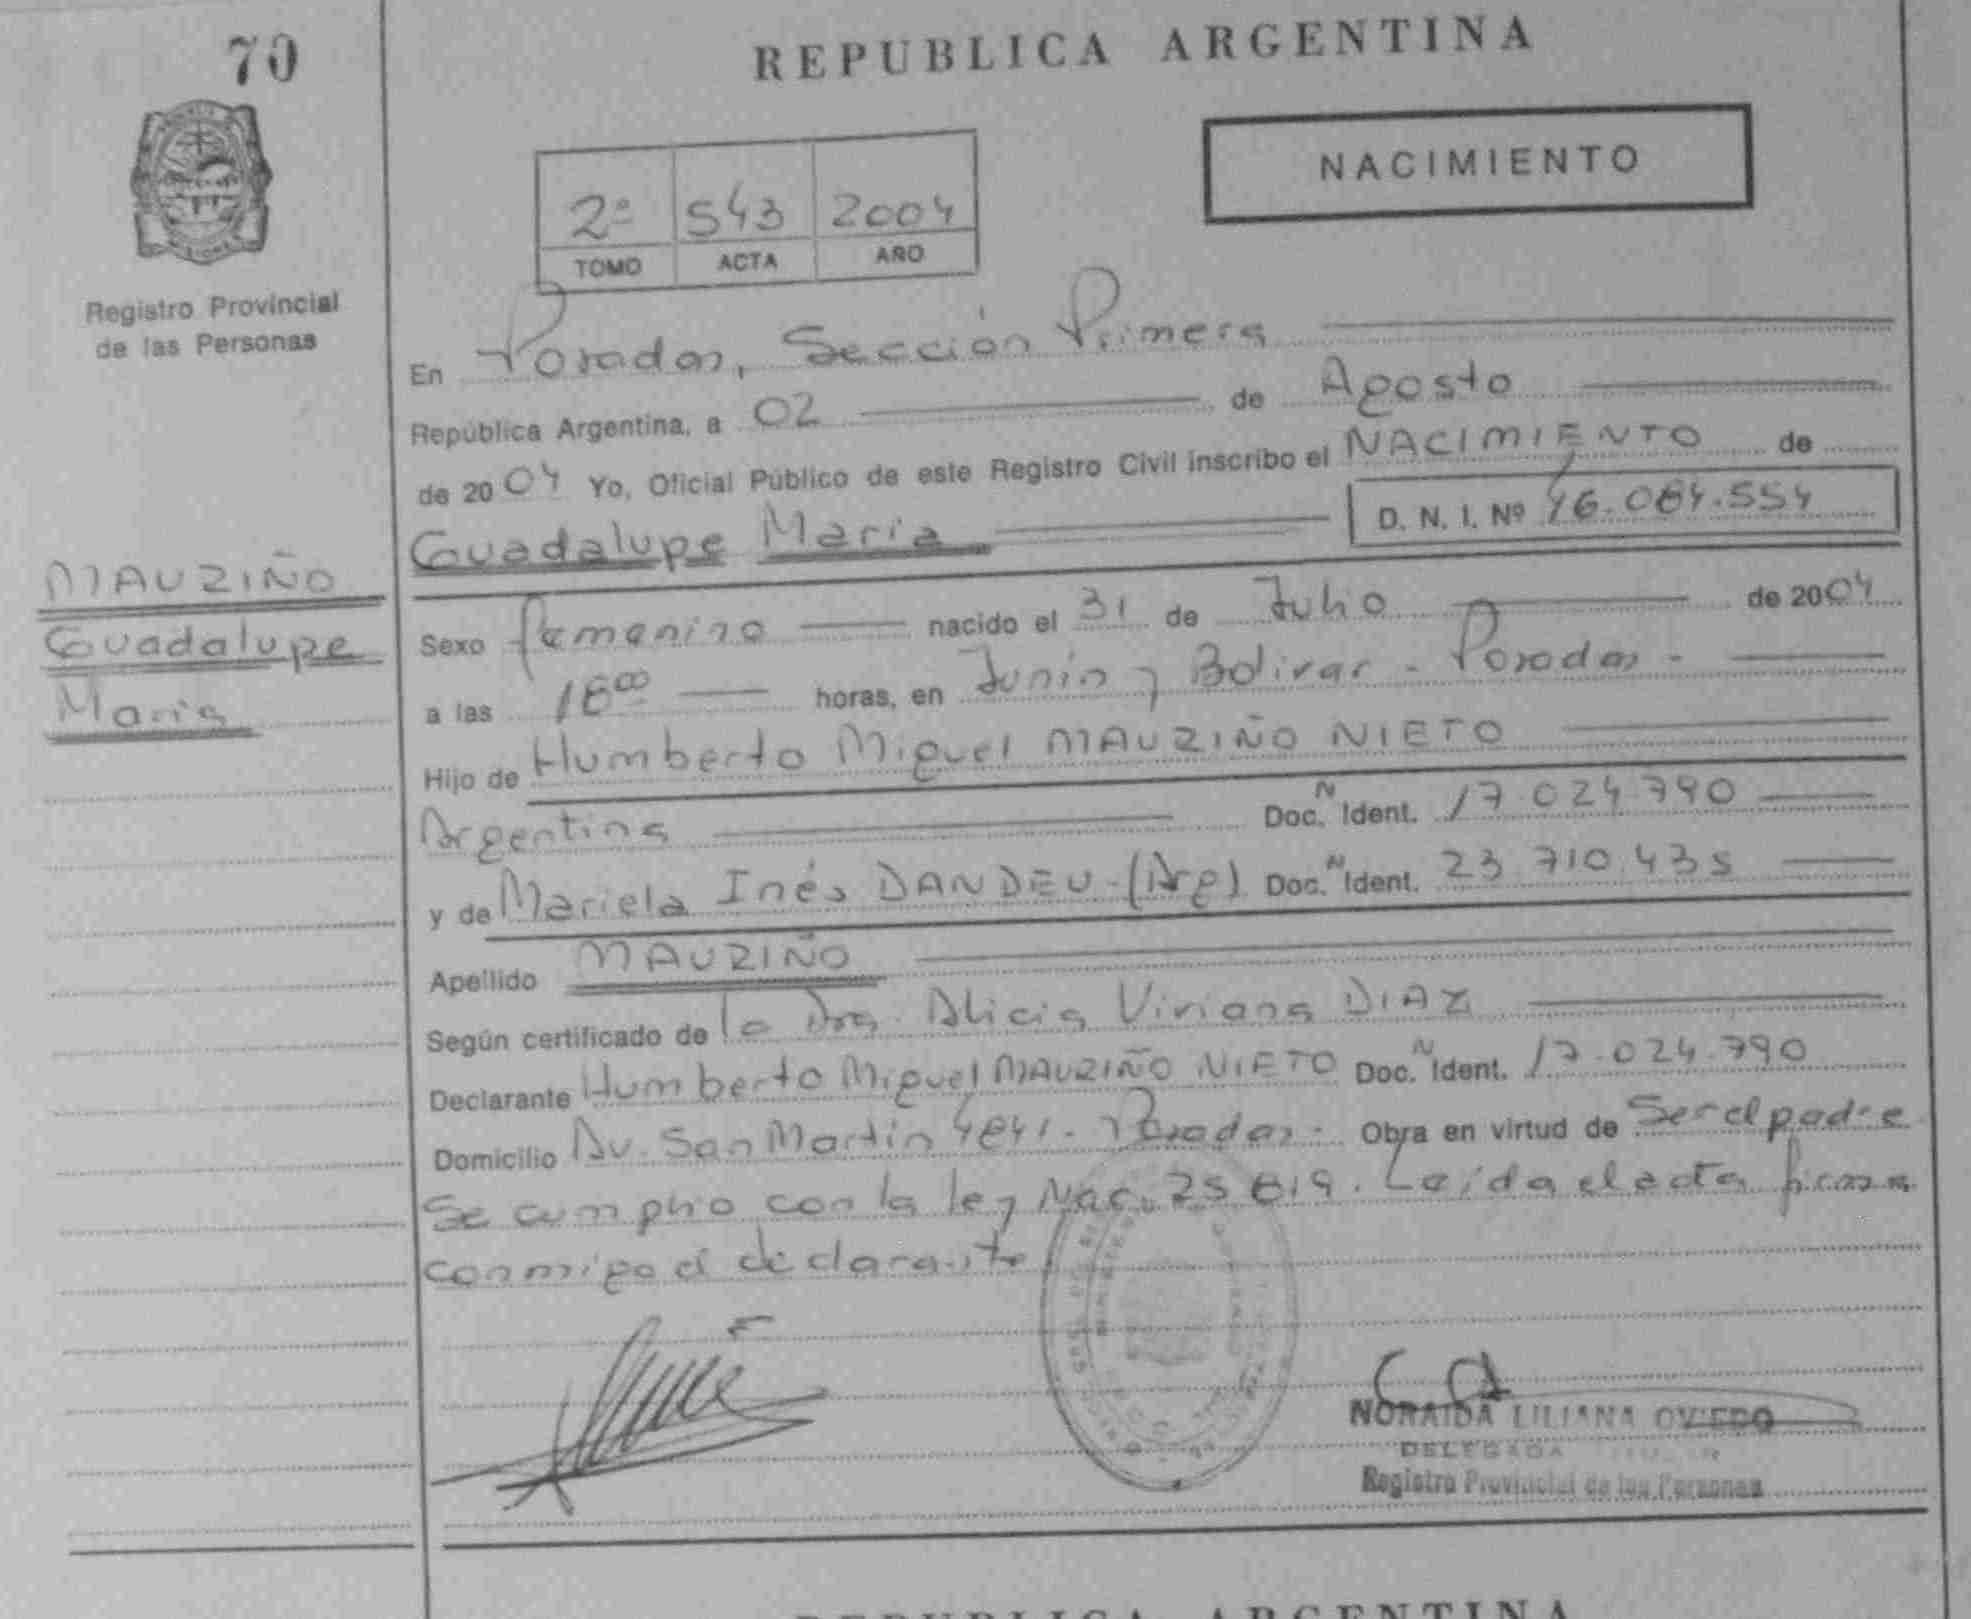 70
REPUBLICA ARGENTINA
NACIMIENTO
2º 543 2004
TOMO ACTA AÑO
Registro Provincial
de las Personas
En Posadas, Sección Primera
República Argentina, a 02 de Agosto
de 2004 Yo, Oficial Público de este Registro Civil inscribo el NACIMIENTO de
Guadalupe María D. N. I. Nº 46.084.554
MAUZIÑO
Guadalupe
María
Sexo femenino nacido el 31 de Julio de 2004
a las 18 00 horas, en Junín y Bolivar - Posadas -
Hijo de Humberto Miguel MAUZIÑO NIETO
Argentina Doc. N Ident. 17.024.790
y de Mariela Inés DANDEU - (Arg) Doc. N Ident. 23.710.435
Apellido MAUZIÑO
Según certificado de la Dra. Alicia Viviana DIAZ
Declarante Humberto Miguel MAUZIÑO NIETO Doc. N Ident. 17.024.790
Domicilio Av. San Martín 4841 - Posadas - Obra en virtud de Ser el padre
Se cumplio con la ley Nac. 25819. Leída el acta firma
conmigo el declarante
NORAIDA LILIANA OVIEDO
DELEGADA
Registro Provincial de las Personas
REPUBLICA ARGENTINA